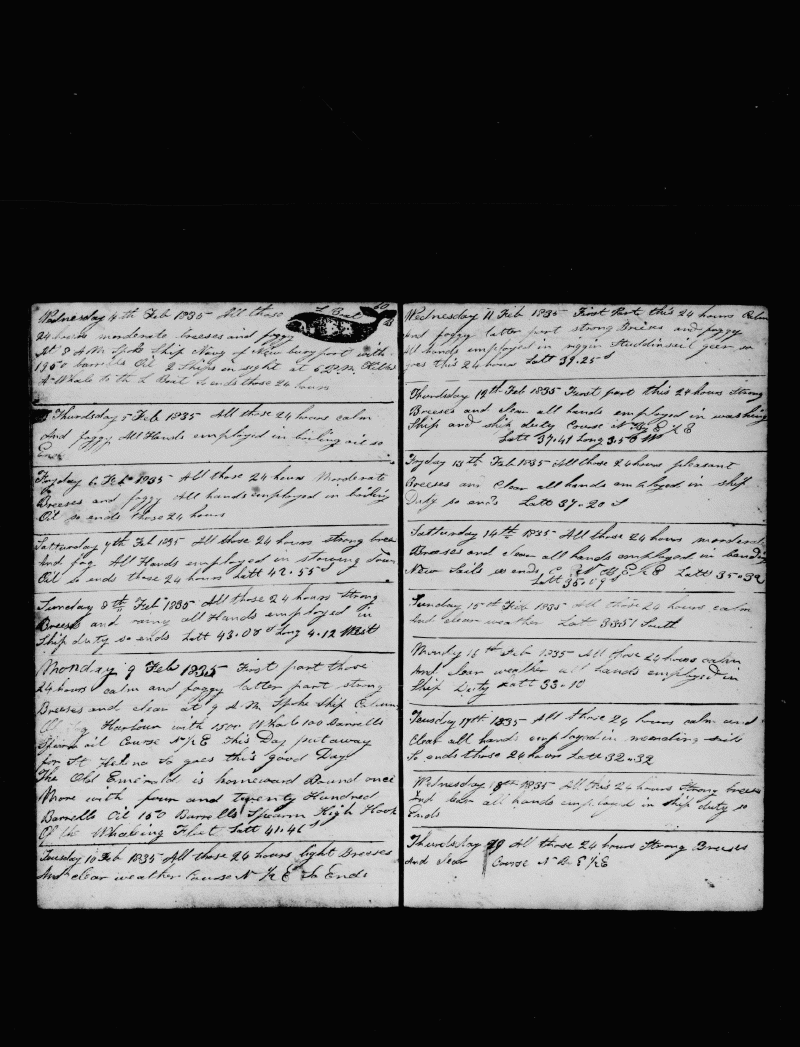 Wednesday 4th Feb 1835 All those
L Boat 60
24 hours morderate breeses and foggy
At 8 A M Spoke Ship Navy of New buryport with
1950 barrels Oil 2 Ships in sight at 6 P.M. Killed
A Whale to the L Boat So ends those 24 hours
Thurdsday 5 Feb 1835 All those 24 hours calm
And foggy All Hands employed in boiling oil so
Ends
Fryday 6 Feb 1835 All those 24 hours Morderate
Breeses and foggy All hands employed in boiling
Oil so ends those 24 hours
Satturday 7th Feb 1835 All those 24 hours strong breese
And fog All Hands employed in stowing Down
Oil so ends those 24 hours Latt 42.55 S
Sunday 8th Feb 1835 All those 24 hours Strong
Breeses and rainy all Hands employed in
Ship duty so ends Latt 43.08 S Long 4.12 West
Monday 9 Feb 1835 First part those
24 hours calm and foggy latter part strong
Breeses and clear at 9 A.M. Spoke Ship
Of Harbour with 1500 Whale 100 Barrells
Spirm oil Course N 1/2 E This Day put away
for St Helena So goes this good Day
The Old Emerald is homeward Bound once
More with four and twenty Hundred
Barrells Oil 150 Barrells Spearm High Hook
Of the Whaleing Fleet Latt 41.46 S
Tuesday 10 Feb 1835 All those 24 hours light Breeses
And clear weather Course N 1/2 E So Ends
Wednesday 11 Feb 1835 First Part this 24 hours Calm
And foggy latter part strong Breeses and foggy
All hands employed in riggin Studdinseil geer so
goes this 24 hours Latt 39.25 S
Thurdsday 12th Feb 1835 First part this 24 hours Strong
Breeses and clear all hands employed in washing
Ship and ship duty Course N By E 1/2 E
Latt 37.41 Long 3.56 W
Fryday 13th Feb 1835 All those 24 hours pleasant
Breeses and Clear all hands employed in ship
Duty so ends Latt 37.20 S
Satturday 14th 1835 All those 24 hours morderate
Breeses and clear all hands employed in bending
New Sails so ends N B E 1/2 E Latt 35.32
Latt 35.09 S
Sunday 15th Feb 1835 All those 24 hours calm
And clear weather Latt 33.51 South
Monday 16th Feb 1835 All those 24 hours calm
And clear weather all hands employed in
Ship Duty Latt 33.10
Tuesday 17th 1835 All those 24 hours calm and
Clear all hands employed in mending sails
So ends those 24 hours Latt 32.32
Wednesday 18th 1835 All this 24 hours Strong breeses
And clear all hands employed in ship duty so
Ends
Thurdsday 19 All those 24 hours Strong Breeses
And Clear Course N B E 1/2 E